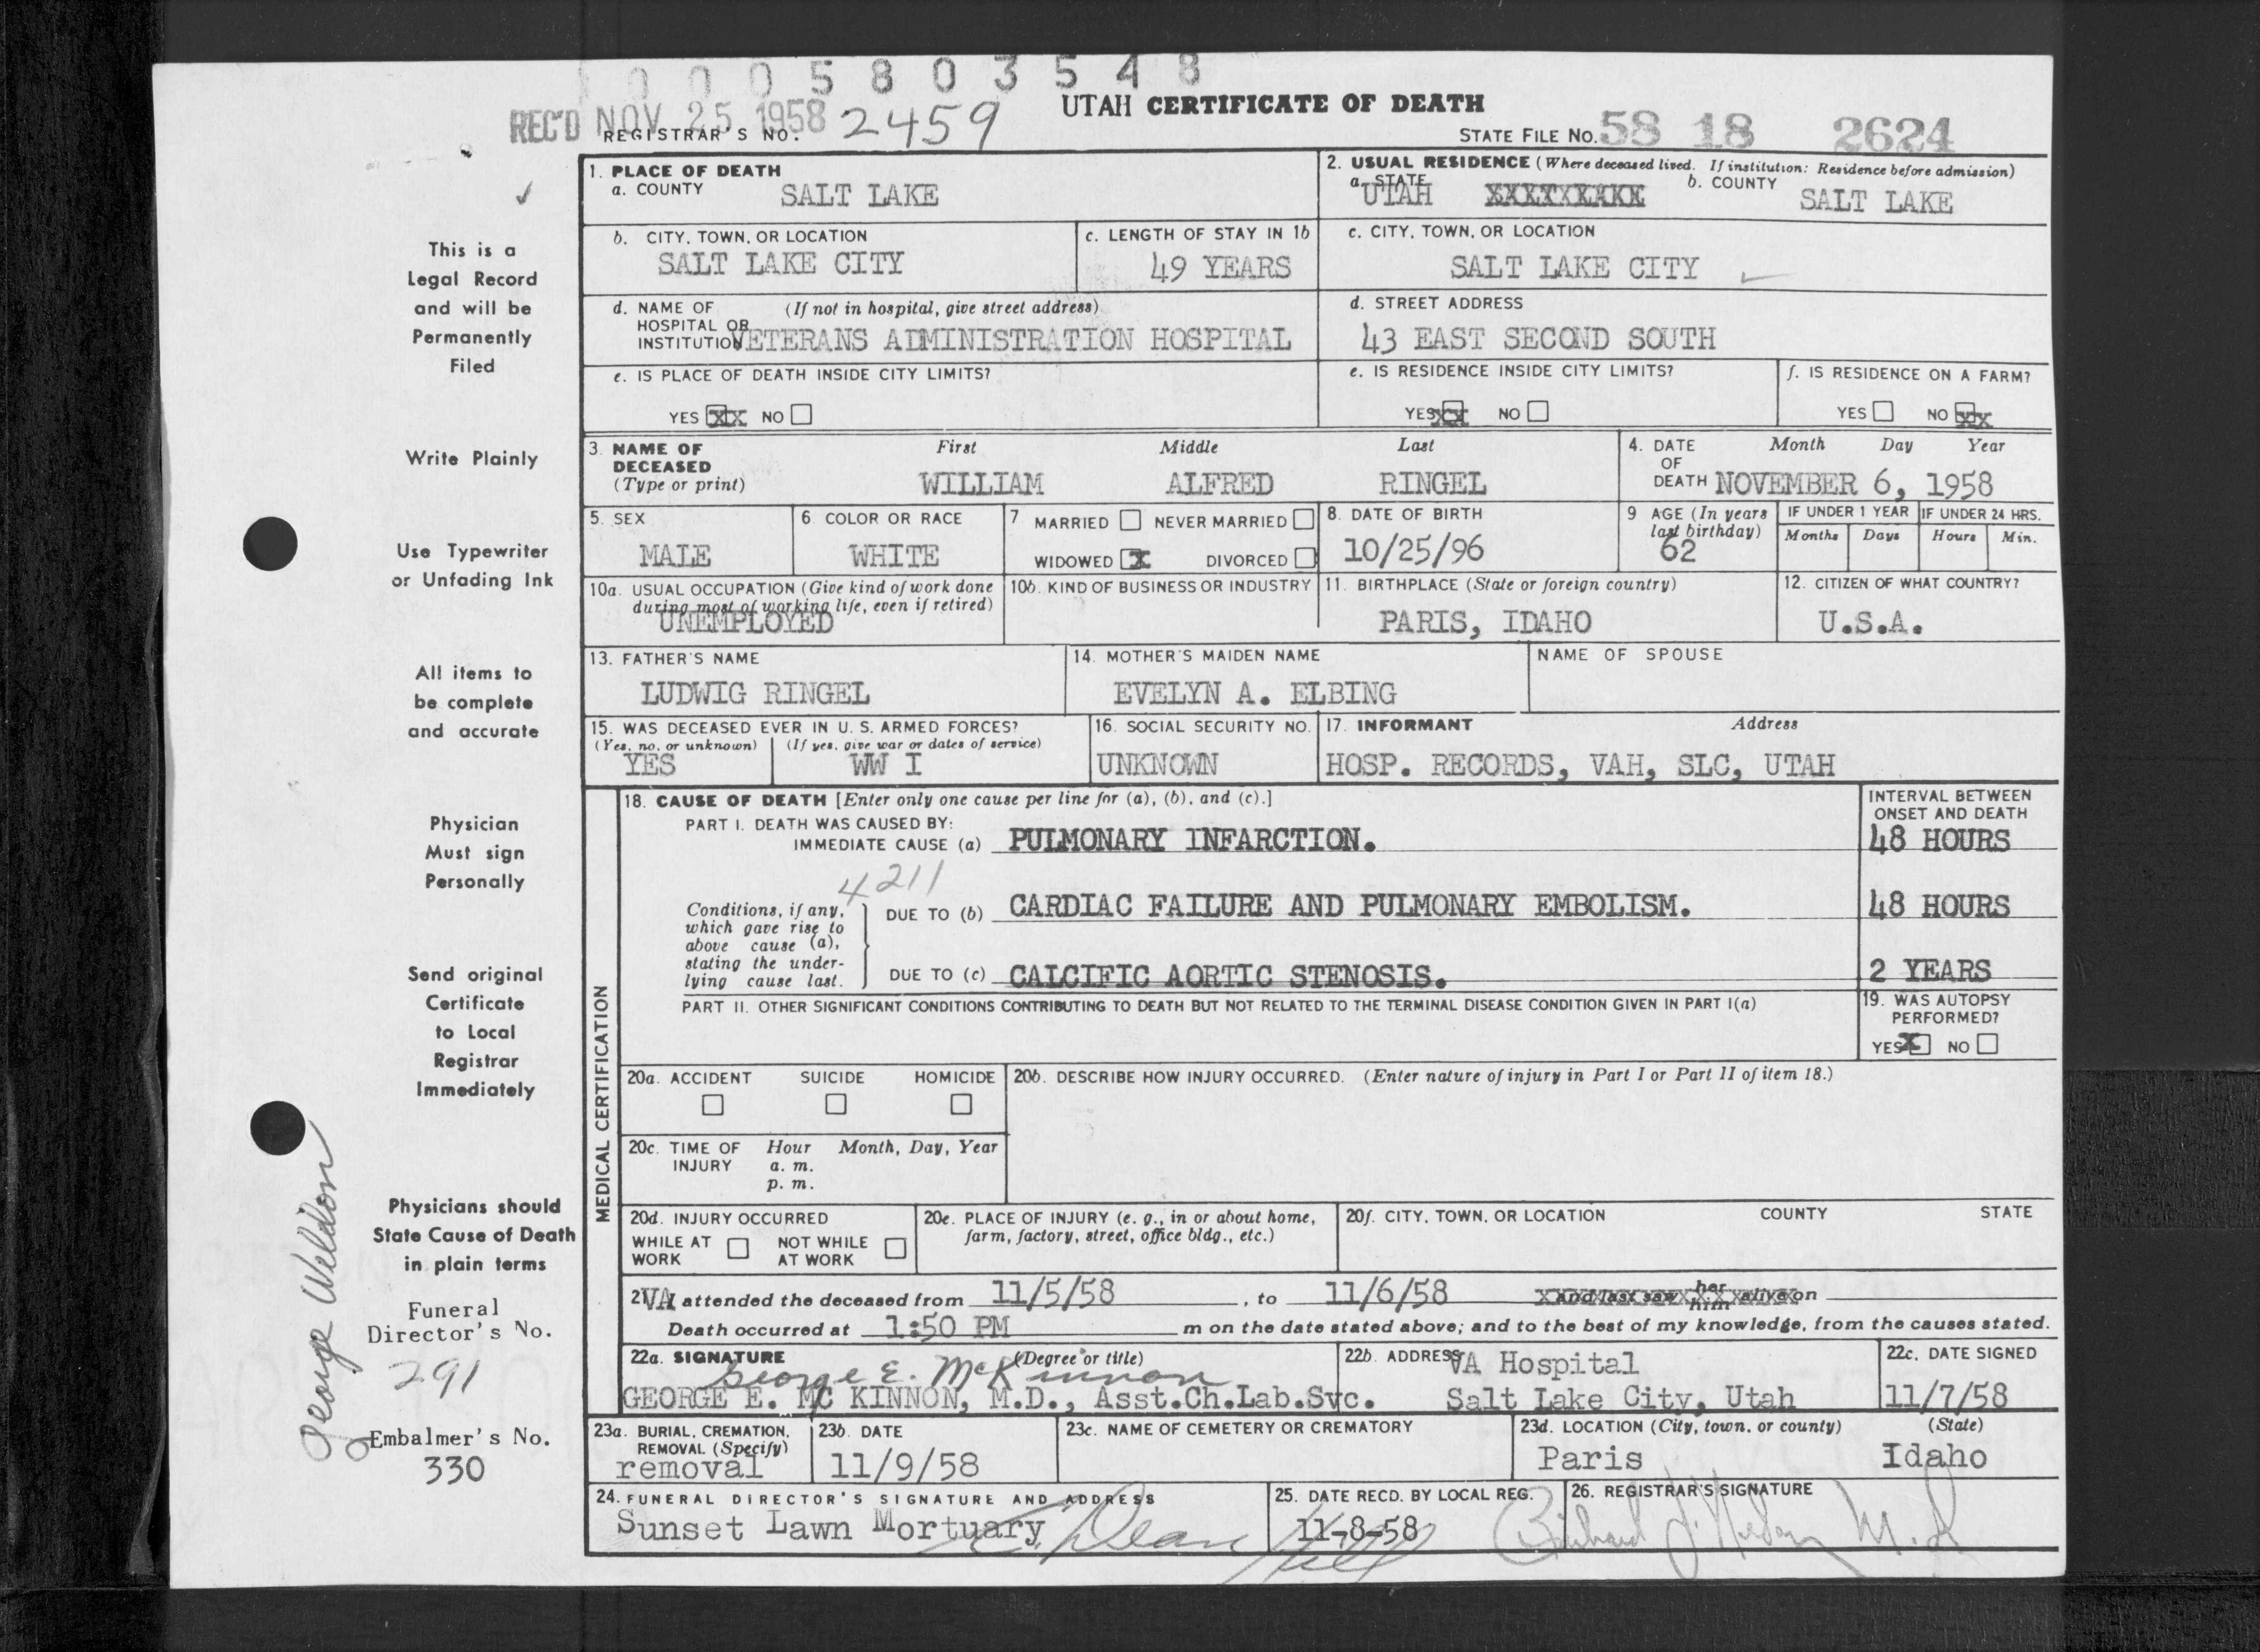 0 0 0 5 8 0 3 5 4 8
REC'D NOV 25 1958
REGISTRAR'S NO. 2459
UTAH CERTIFICATE OF DEATH
STATE FILE NO. 58 18 2624
This is a
Legal Record
and will be
Permanently
Filed
Write Plainly
Use Typewriter
or Unfading Ink
All items to
be complete
and accurate
Physician
Must sign
Personally
Send original
Certificate
to Local
Registrar
Immediately
Physicians should
State Cause of Death
in plain terms
Funeral
Director's No.
291
Embalmer's No.
330
George Weldon
1. PLACE OF DEATH
a. COUNTY SALT LAKE
2. USUAL RESIDENCE (Where deceased lived. If institution: Residence before admission)
a. STATE UTAH b. COUNTY SALT LAKE
b. CITY, TOWN, OR LOCATION
SALT LAKE CITY
c. LENGTH OF STAY IN 1b
49 YEARS
c. CITY, TOWN, OR LOCATION
SALT LAKE CITY
d. NAME OF (If not in hospital, give street address)
HOSPITAL OR
INSTITUTION VETERANS ADMINISTRATION HOSPITAL
d. STREET ADDRESS
43 EAST SECOND SOUTH
e. IS PLACE OF DEATH INSIDE CITY LIMITS?
YES XX NO
e. IS RESIDENCE INSIDE CITY LIMITS?
YES XX NO
f. IS RESIDENCE ON A FARM?
YES NO XX
3. NAME OF First Middle Last
DECEASED
(Type or print) WILLIAM ALFRED RINGEL
4. DATE Month Day Year
OF
DEATH NOVEMBER 6, 1958
5. SEX
MALE
6 COLOR OR RACE
WHITE
7 MARRIED NEVER MARRIED
WIDOWED X DIVORCED
8. DATE OF BIRTH
10/25/96
9 AGE (In years
last birthday)
62
IF UNDER 1 YEAR
Months Days
IF UNDER 24 HRS.
Hours Min.
10a. USUAL OCCUPATION (Give kind of work done
during most of working life, even if retired)
UNEMPLOYED
10b. KIND OF BUSINESS OR INDUSTRY
11. BIRTHPLACE (State or foreign country)
PARIS, IDAHO
12. CITIZEN OF WHAT COUNTRY?
U.S.A.
13. FATHER'S NAME
LUDWIG RINGEL
14. MOTHER'S MAIDEN NAME
EVELYN A. ELBING
NAME OF SPOUSE
15. WAS DECEASED EVER IN U. S. ARMED FORCES?
(Yes, no, or unknown) (If yes, give war or dates of service)
YES WW I
16. SOCIAL SECURITY NO.
UNKNOWN
17. INFORMANT Address
HOSP. RECORDS, VAH, SLC, UTAH
MEDICAL CERTIFICATION
18. CAUSE OF DEATH [Enter only one cause per line for (a), (b), and (c).]
INTERVAL BETWEEN
ONSET AND DEATH
PART I. DEATH WAS CAUSED BY:
IMMEDIATE CAUSE (a) PULMONARY INFARCTION. 48 HOURS
4211
Conditions, if any,
which gave rise to
above cause (a),
stating the under-
lying cause last.
DUE TO (b) CARDIAC FAILURE AND PULMONARY EMBOLISM. 48 HOURS
DUE TO (c) CALCIFIC AORTIC STENOSIS. 2 YEARS
PART II. OTHER SIGNIFICANT CONDITIONS CONTRIBUTING TO DEATH BUT NOT RELATED TO THE TERMINAL DISEASE CONDITION GIVEN IN PART I(a)
19. WAS AUTOPSY
PERFORMED?
YES X NO
20a. ACCIDENT SUICIDE HOMICIDE
20b. DESCRIBE HOW INJURY OCCURRED. (Enter nature of injury in Part I or Part II of item 18.)
20c. TIME OF Hour Month, Day, Year
INJURY a. m.
p. m.
20d. INJURY OCCURRED
WHILE AT NOT WHILE
WORK AT WORK
20e. PLACE OF INJURY (e. g., in or about home,
farm, factory, street, office bldg., etc.)
20f. CITY, TOWN, OR LOCATION COUNTY STATE
21 VA attended the deceased from 11/5/58, to 11/6/58 and last saw her him alive on
Death occurred at 1:50 PM m on the date stated above; and to the best of my knowledge, from the causes stated.
22a. SIGNATURE (Degree or title)
George E. McKinnon
GEORGE E. MC KINNON, M.D., Asst.Ch.Lab.Svc.
22b. ADDRESS VA Hospital
Salt Lake City, Utah
22c. DATE SIGNED
11/7/58
23a. BURIAL, CREMATION,
REMOVAL (Specify)
removal
23b. DATE
11/9/58
23c. NAME OF CEMETERY OR CREMATORY
23d. LOCATION (City, town, or county) (State)
Paris Idaho
24. FUNERAL DIRECTOR'S SIGNATURE AND ADDRESS
Sunset Lawn Mortuary Dean
25. DATE RECD. BY LOCAL REG.
11-8-58
26. REGISTRAR'S SIGNATURE
Richard M.D.